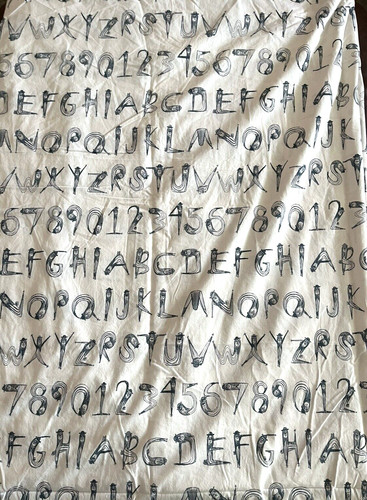 VWXYZRSTUVWXYZRS
567890123456789012
DEFGHIABCDEFGHIAB
MNOPQIJKLMNOPQIJK
VWXYZRSTUVWXYZRST
678901234567890123
EFGHIABCDEFGHIABC
NOPQIJKLMNOPQIJK
WXYZRSTUVWXYZRST
78901234567890123
FGHIABCDEFGHIAB